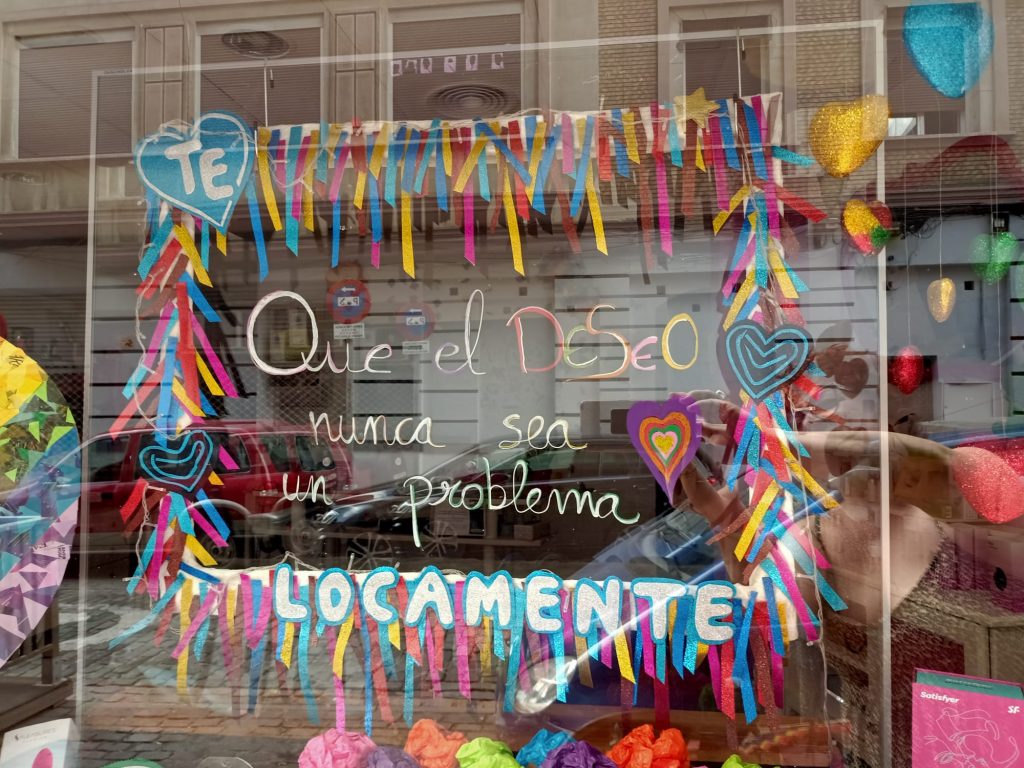 TE
Que el DESEO
nunca sea
un problema
LOCAMENTE
Satisfyer
SF